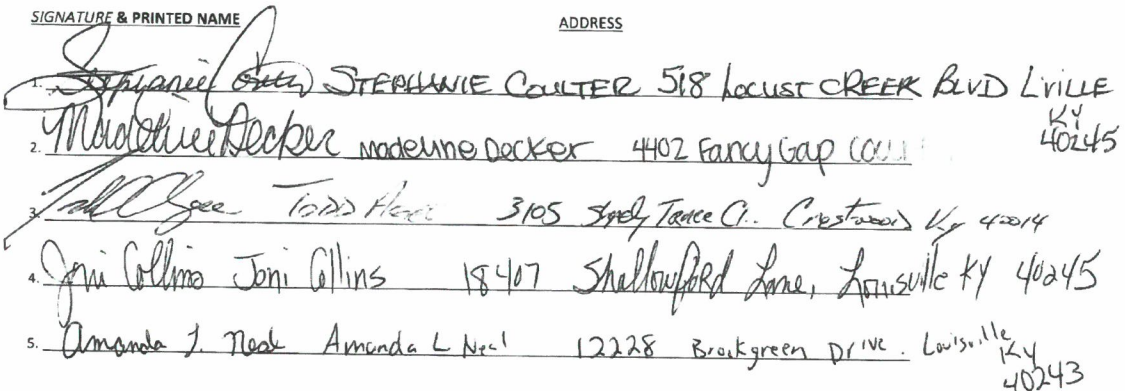 SIGNATURE & PRINTED NAME ADDRESS
1. Stephanie Coulter STEPHANIE COULTER 518 LOCUST CREEK BLVD LVILLE
KY
40245
2. Madeline Decker Madeline Decker 4402 Fancy Gap
3. Todd TODD 3105 Ct. Crestwood Ky 40014
4. Joni Collins Joni Collins 18407 Shallowford Lane, Louisville KY 40245
5. Amanda L. Neal Amanda L Neal 12228 Brookgreen Drive. Louisville
KY
40243